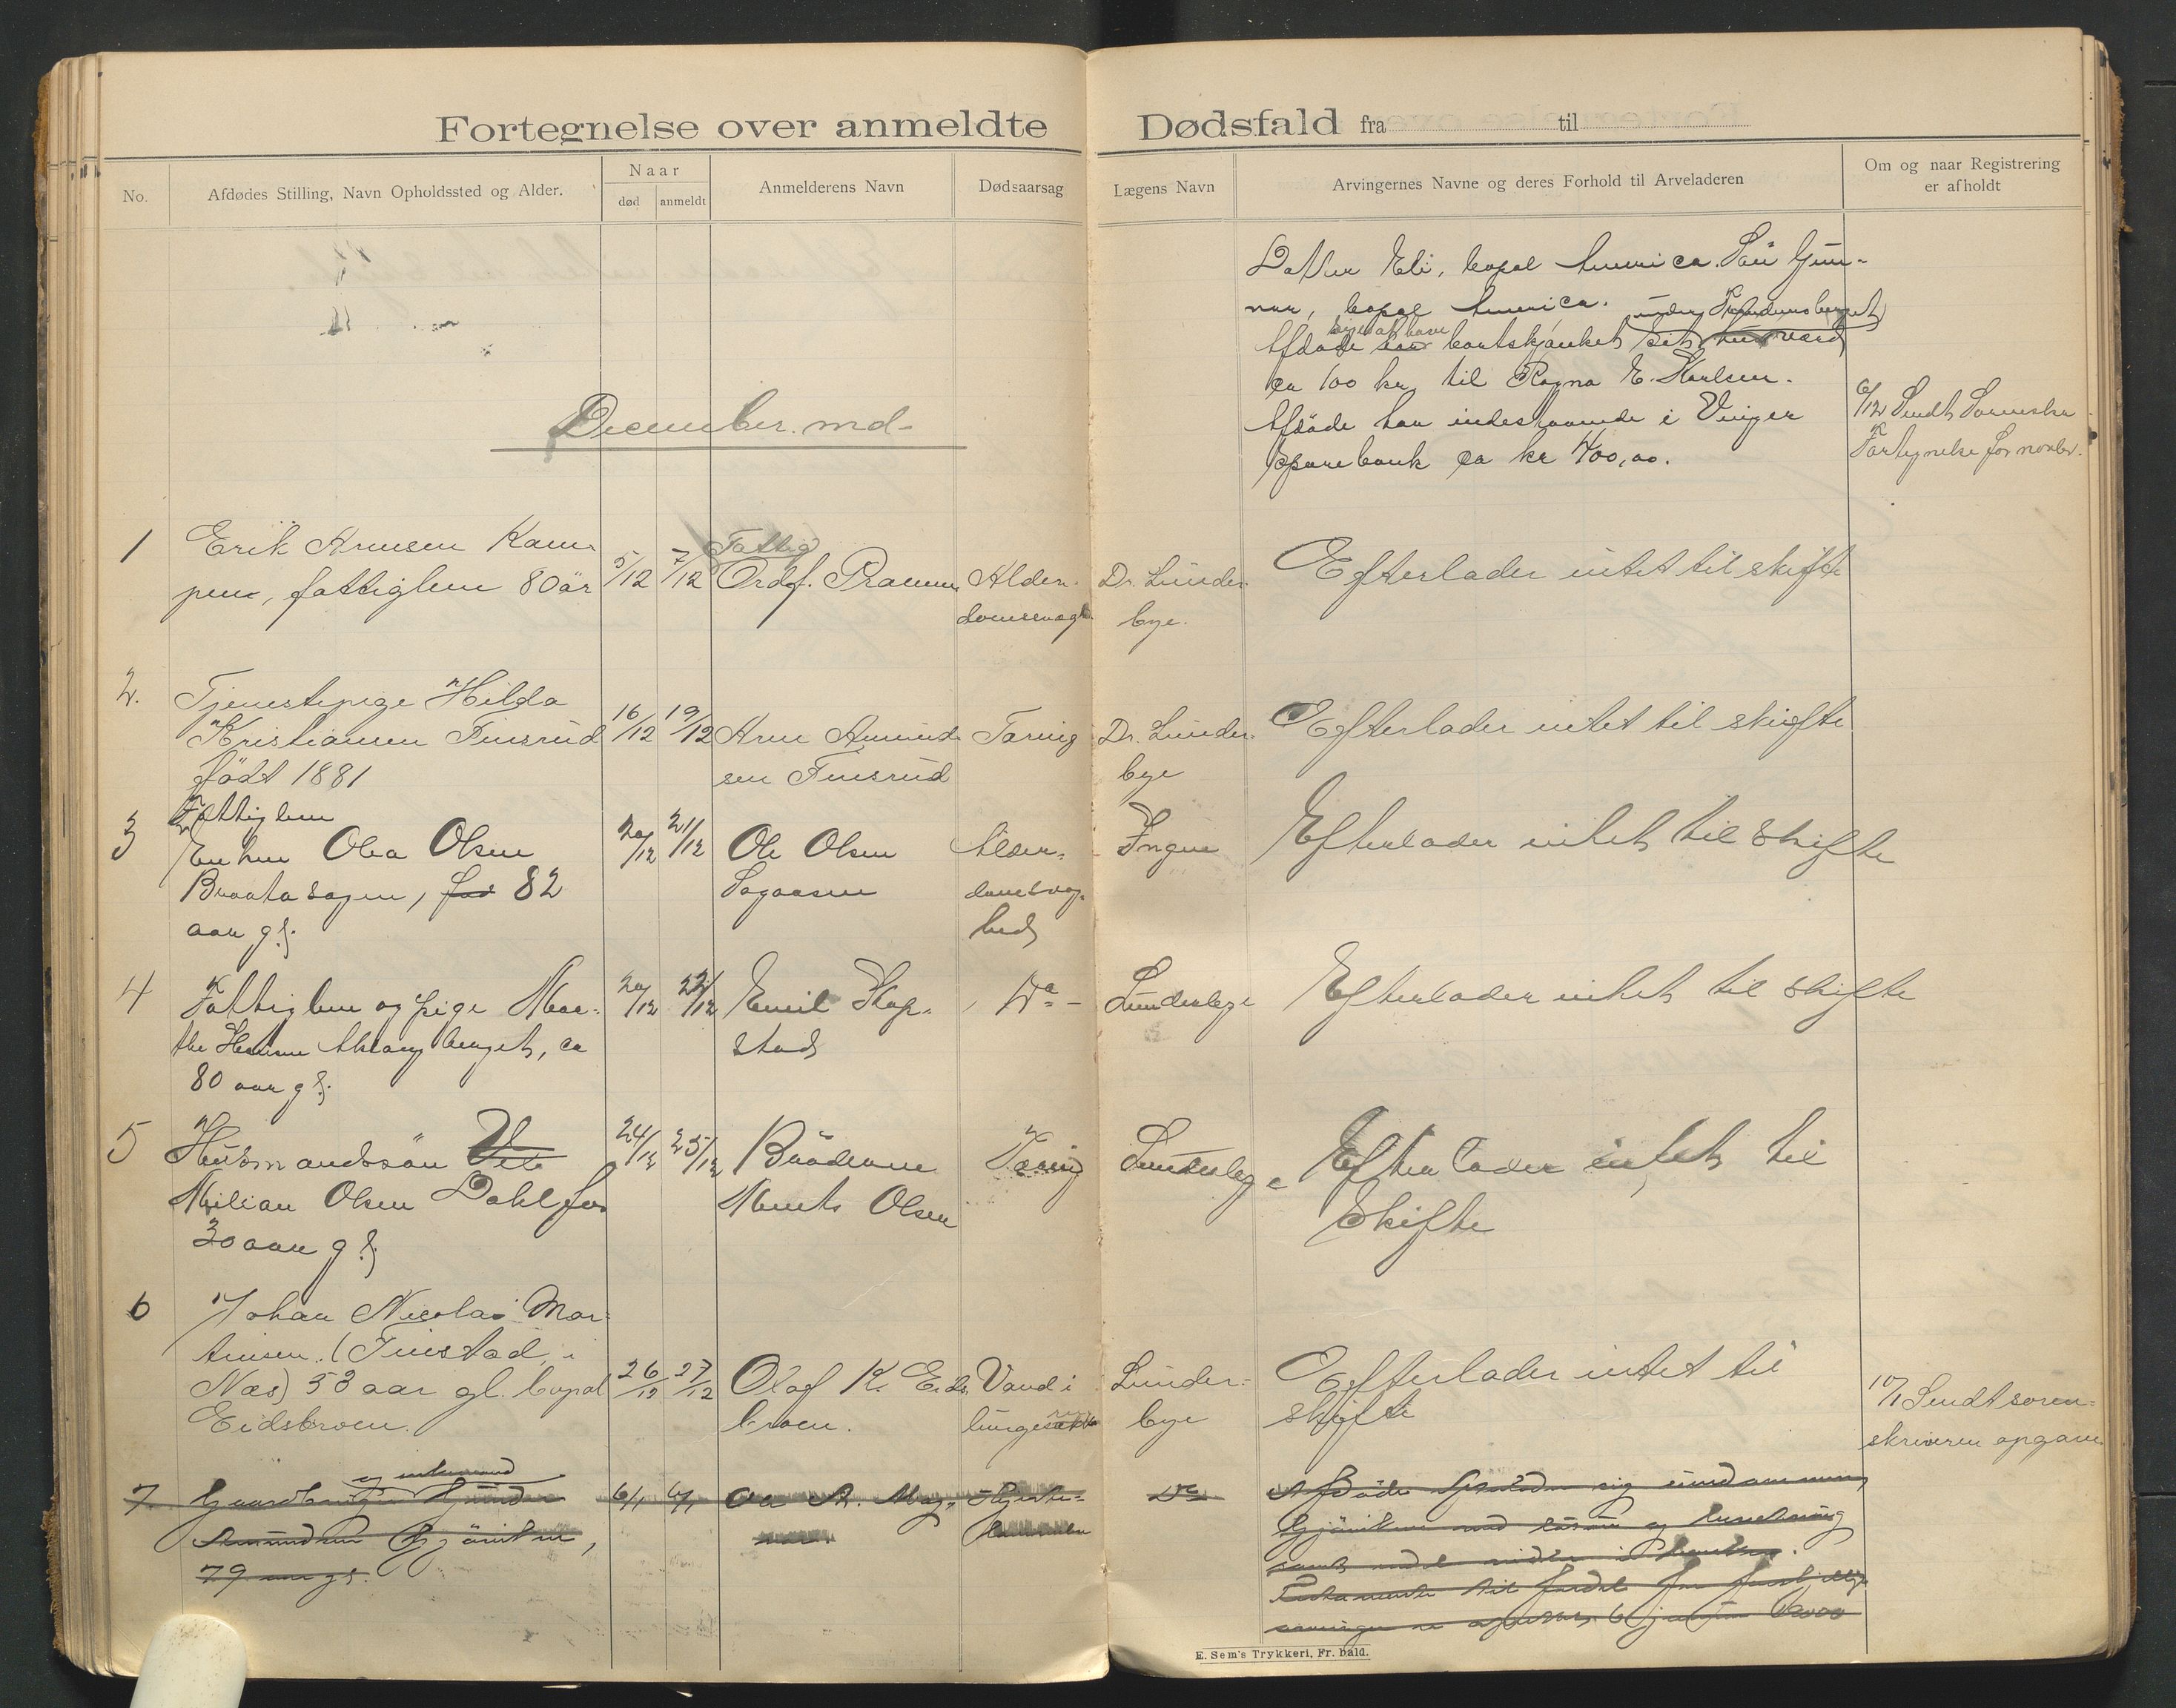 Fortegnelse over anmeldte Dødsfald fra til
No.
Afdødes Stilling, Navn Opholdssted og Alder.
Naar
død
anmeldt
Anmelderens Navn
Dødsaarsag
Lægens Navn
Arvingernes Navne og deres Forhold til Arveladeren
Om og naar Registrering
er afholdt
Datter Eli, bopæl America. Søn Gun-
nar, bopæl America. under
Afdøde bortskjænket sit værd
ca 100 kr, til Ragna E. Karlsen.
Afdøde har indestaaende i Vinger
Sparebank ca kr 400,00.
6/12 Sendt Sorenskr
Fortegnelse for novbr.
December. md.
1
Erik Arnesen Kam-
pen, fattiglem 80 år
5/12
7/12
Fattig
Ordf. Pramm
Alder-
domssvagh.
Dr. Lunder-
bye.
Efterlader intet til skifte
2.
Tjenestepige Hilda
Kristiansen Finsrud
født 1881
16/12
19/12
Arne Amund-
sen Finsrud
Tæring
Dr. Lunder-
bye
Efterlader intet til skifte
3
Fattiglem
Enken Olea Olsen
Braatasagen, 82
aar gl.
20/12
21/12
Ole Olsen
Sagaasen
Alder-
domssvag-
hed
Ingen
Efterlader intet til Skifte
4
Fattiglem og pige Mar-
the Hansen berget, ca
80 aar gl.
20/12
22/12
Emil Skap-
stad
Do -
Lunderbye
Efterlader intet til Skifte
5
Husmandssøn
Milian Olsen Dahlfos
30 aar gl.
24/12
25/12
Broderen
Ments Olsen
Tæring
Lunderbye
Efterlader intet til
Skifte
6
Johan Nicolai Mar-
tinsen. (Finstad i
Næs) 53 aar gl. bopæl
Eidsbroen.
26/12
27/12
Olaf K. Eids-
broen.
Vand i
lunge
Lunder-
bye
Efterlader intet til
skifte
10/1 Sendt soren-
skriveren opgave
7.
og enkemand
Gaardbruger Gunder
Amundsen Gjøsviken,
79 aar gl.
6/1
6/1
Ole A. Mag-
Hjerte-
Do
Afdøde sig eiendommen
og besætning
samt
Testamente til fordel for
E. Sem's Trykkeri, Fr. hald.